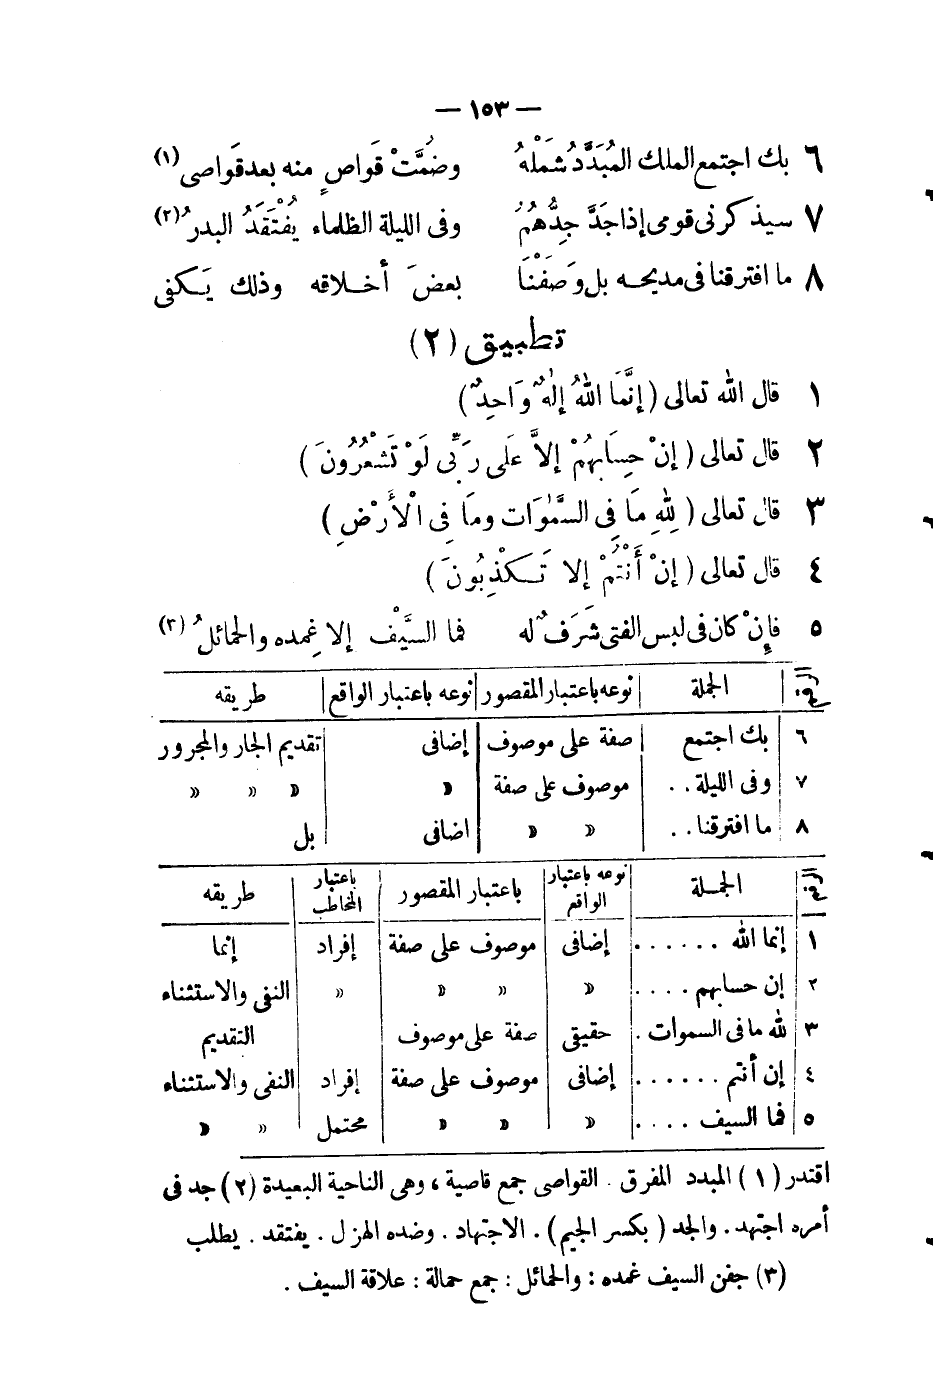 — ١٥٣ —
٦ بك اجتمع الملك المُبَدَّدُ شَمْلُهُ وضُمَّتْ قَوَاصٍ منه بعد قَواصى (١)
٧ سيذكرنى قومى إذا جَدَّ جِدُّهُمُ وفى الليلة الظلماء يُفْتَقَدُ البدرُ (٢)
٨ ما افترقنا فى مديحه بل وصَفْنَا بعضَ أخلاقه وذلك يَكفى
تطبيق (٢)
١ قال الله تعالى (إِنَّمَا اللهُ إِلٰهٌ وَاحِدٌ)
٢ قال تعالى (إِنْ حِسَابُهُمْ إِلاَّ عَلَى رَبِّى لَوْ تَشْعُرُونَ)
٣ قال تعالى (لِلهِ مَا فِى السَّمٰوَات وَمَا فِى الْأَرْضِ)
٤ قال تعالى (إِنْ أَنْتُمْ إلا تَكْذِبُونَ)
٥ فإِنْ كان فى لبس الفتى شَرَفٌ له فما السَّيْف إلا غِمده والحمائلُ (٣)
الرقم | الجملة | نوعه باعتبار المقصور | نوعه باعتبار الواقع | طريقه
٦ | بك اجتمع | صفة على موصوف | إضافى | تقديم الجار والمجرور
٧ | وفى الليلة . . | موصوف على صفة | » | » » »
٨ | ما افترقنا . . | » » | اضافى | بل
الرقم | الجملة | نوعه باعتبار الواقع | باعتبار المقصور | باعتبار المخاطب | طريقه
١ | إنما الله . . . . . . | إضافى | موصوف على صفة | إفراد | إنما
٢ | إن حسابهم . . . . | » | » » » | » | النفى والاستثناء
٣ | لله ما فى السموات . | حقيقى | صفة على موصوف | | التقديم
٤ | إن أنتم . . . . . . | إضافى | موصوف على صفة | إفراد | النفى والاستثناء
٥ | فما السيف . . . . | » | » » » | محتمل | » »
اقتدر (١) المبدد المفرق . القواصى جمع قاصية ، وهى الناحية البعيدة (٢) جد فى
أمره اجتهد . والجد (بكسر الجيم) . الاجتهاد . وضده الهزل . يفتقد . يطلب
(٣) جفن السيف غمده : والحمائل : جمع حمالة : علاقة السيف .